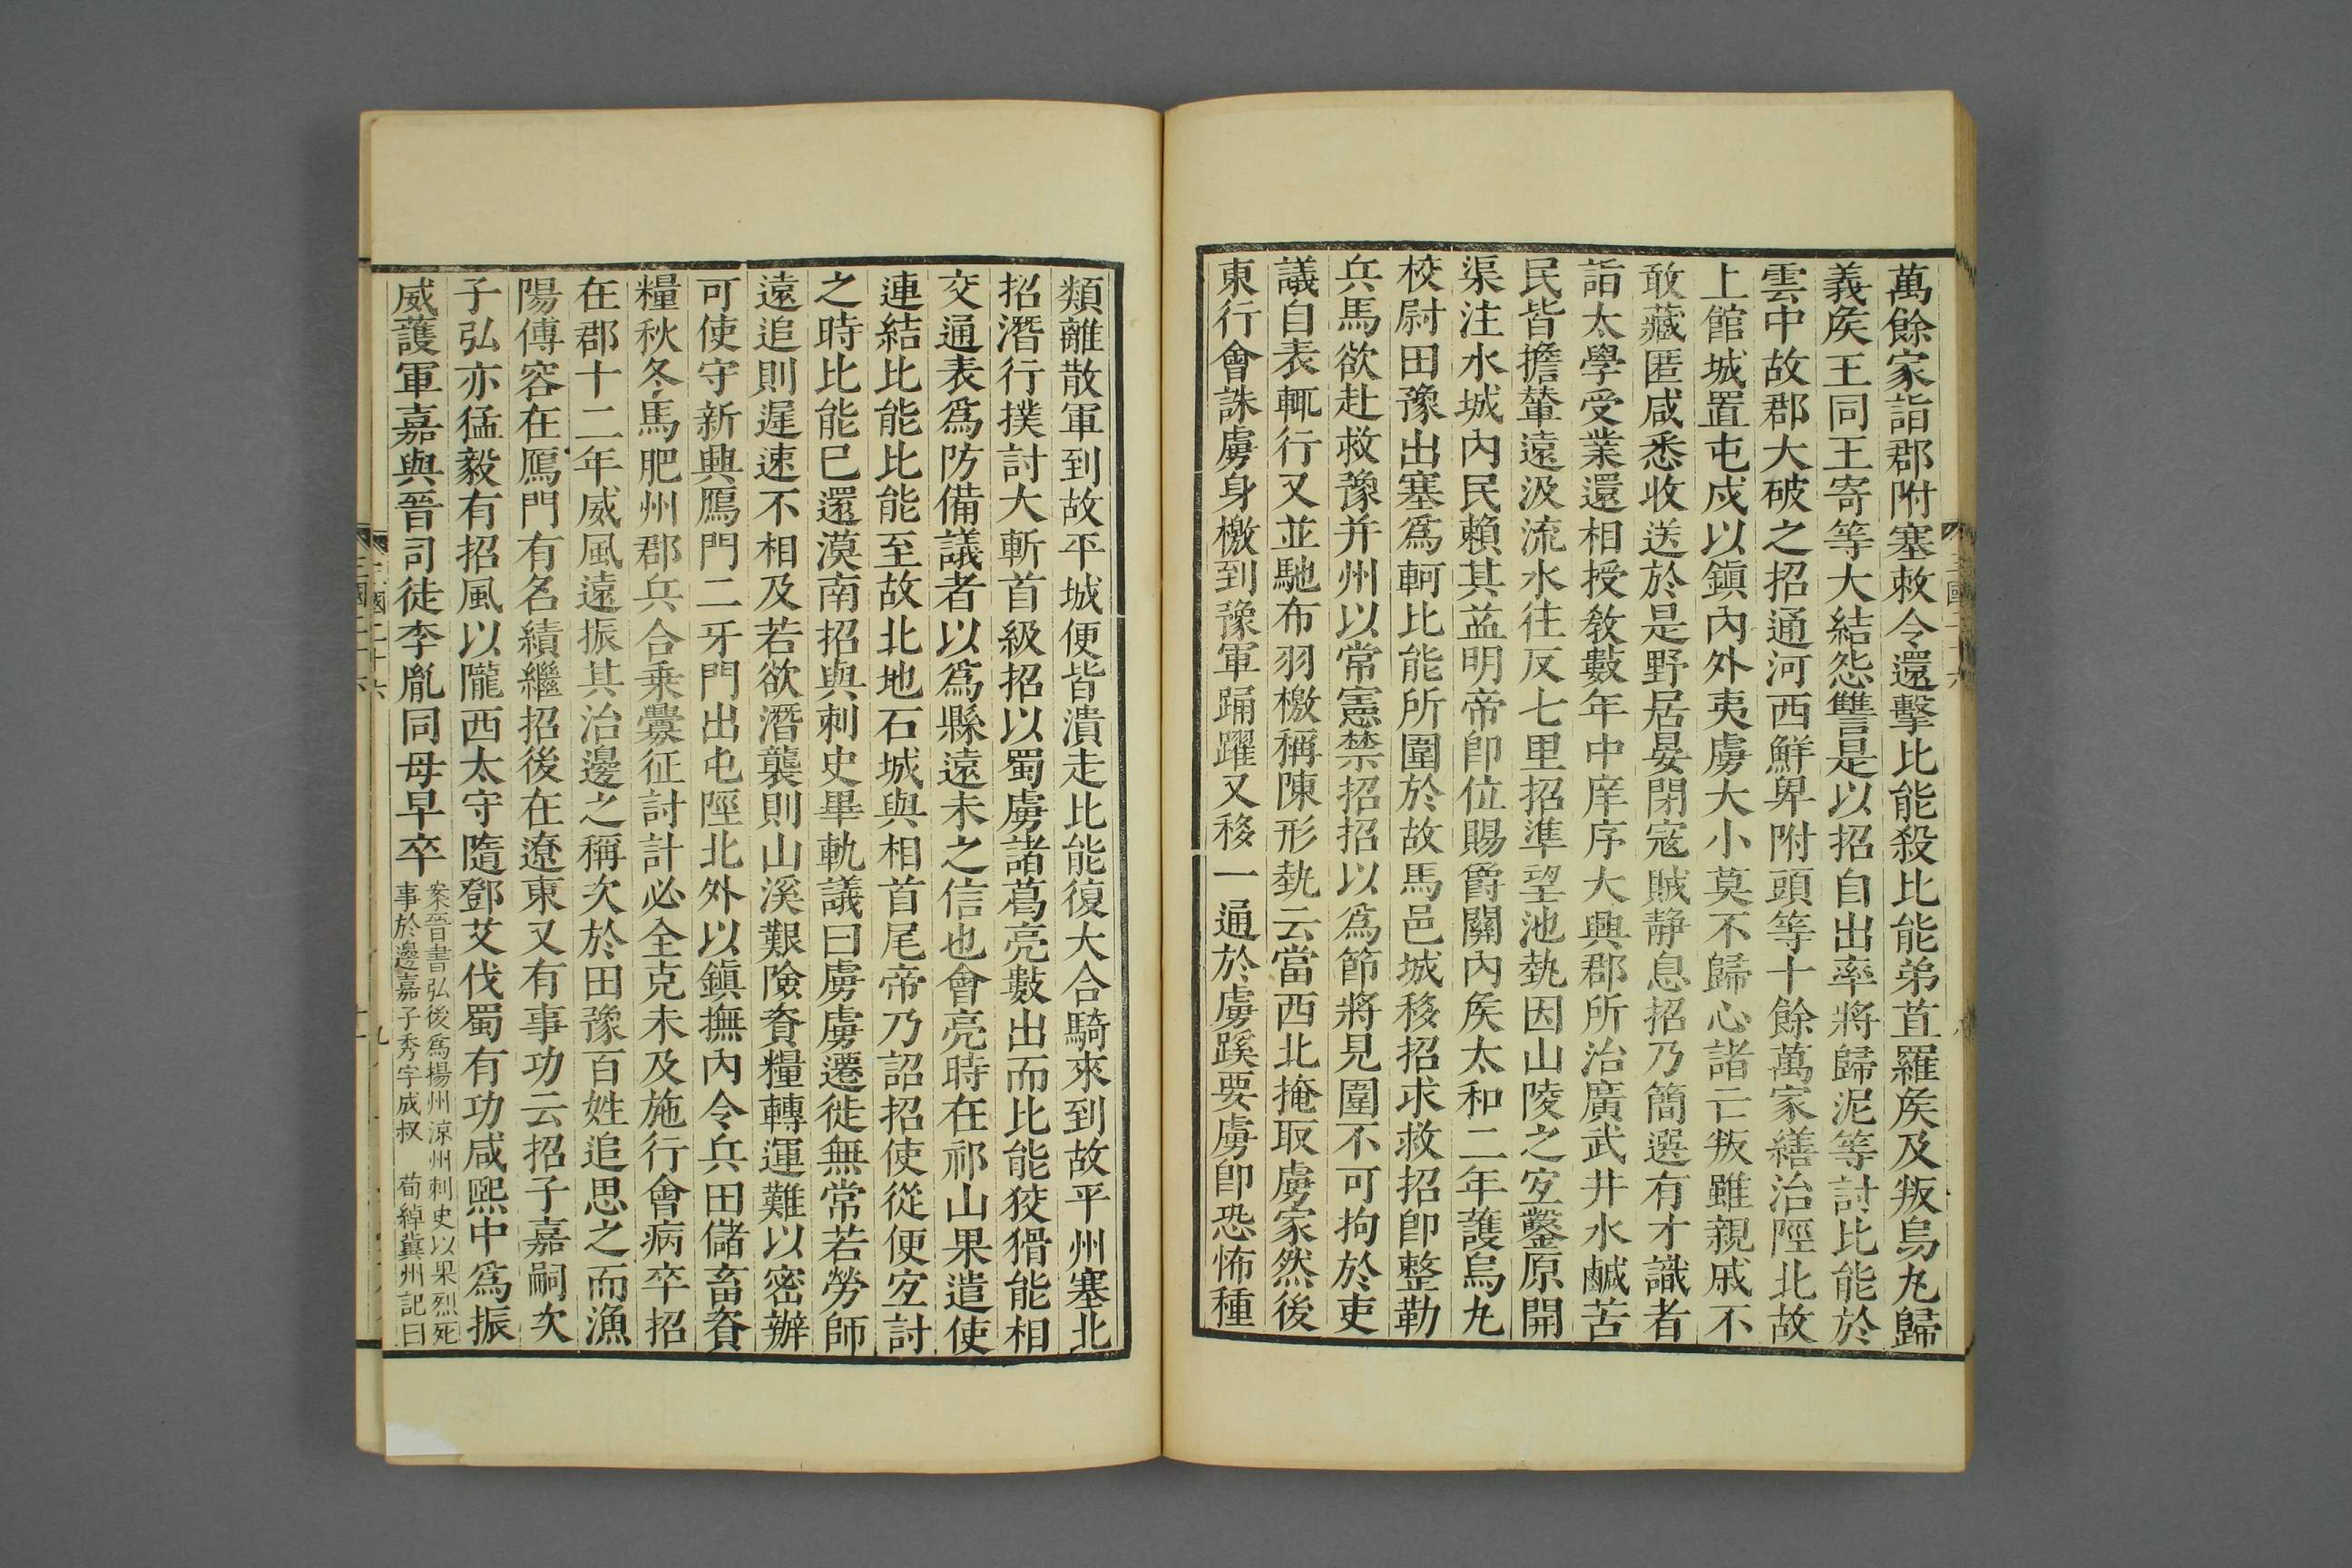 萬餘家詣郡附塞敕令還擊比能殺比能弟苴羅矦及叛烏丸歸
義矦王同王寄等大結怨讐是以招自出率將歸泥等討比能於
雲中故郡大破之招通河西鮮卑附頭等十餘萬家繕治陘北故
上館城置屯戍以鎮內外夷虜大小莫不歸心諸亡叛雖親戚不
敢藏匿咸悉收送於是野居晏閉寇賊靜息招乃簡選有才識者
詣太學受業還相授敎數年中庠序大興郡所治廣武井水鹹苦
民皆擔輦遠汲流水往反七里招準望池埶因山陵之宜鑿原開
渠注水城內民賴其益明帝卽位賜爵關內矦太和二年護烏丸
校尉田豫出塞爲軻比能所圍於故馬邑城移招求救招卽整勒
兵馬欲赴救豫并州以常憲禁招招以爲節將見圍不可拘於吏
議自表輒行又並馳布羽檄稱陳形埶云當西北掩取虜家然後
東行會誅虜身檄到豫軍踊躍又移一通於虜蹊要虜卽恐怖種
類離散軍到故平城便皆潰走比能復大合騎來到故平州塞北
招潛行撲討大斬首級招以蜀虜諸葛亮數出而比能狡猾能相
交通表爲防備議者以爲縣遠未之信也會亮時在祁山果遣使
連結比能比能至故北地石城與相首尾帝乃詔招使從便宜討
之時比能已還漠南招與刺史畢軌議曰虜遷徙無常若勞師
遠追則遲速不相及若欲潛襲則山溪艱險資糧轉運難以密辦
可使守新興鴈門二牙門出屯陘北外以鎮撫內令兵田儲畜資
糧秋冬馬肥州郡兵合乘釁征討計必全克未及施行會病卒招
在郡十二年威風遠振其治邊之稱次於田豫百姓追思之而漁
陽傅容在鴈門有名績繼招後在遼東又有事功云招子嘉嗣次
子弘亦猛毅有招風以隴西太守隨鄧艾伐蜀有功咸熙中爲振
威護軍嘉與晉司徒李胤同母早卒
案晉書弘後爲揚州涼州刺史以果烈死
事於邊嘉子秀字成叔 荀綽冀州記曰
三國二十六
九